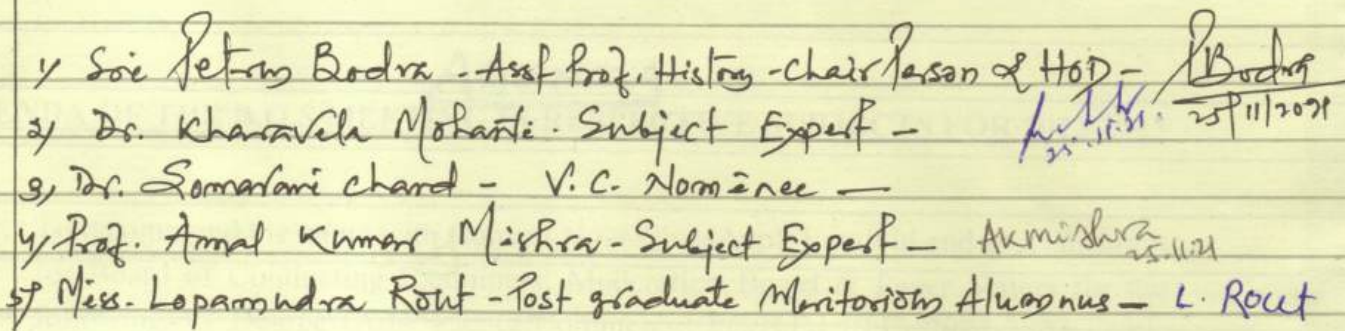 1) Srie Petrus Bodra - Asst Prof. History - Chair Person & HOD - PBodra
25/11/2021
2) Dr. Kharavela Mohanti. Subject Expert - 25.11.21.
3) Dr. Somarani Chand - V.C. Nominee -
4) Prof. Amal Kumar Mishra - Subject Expert - Akmishra
25.11.21
5) Miss. Lopamudra Rout - Post graduate Meritorious Alumnus - L. Rout